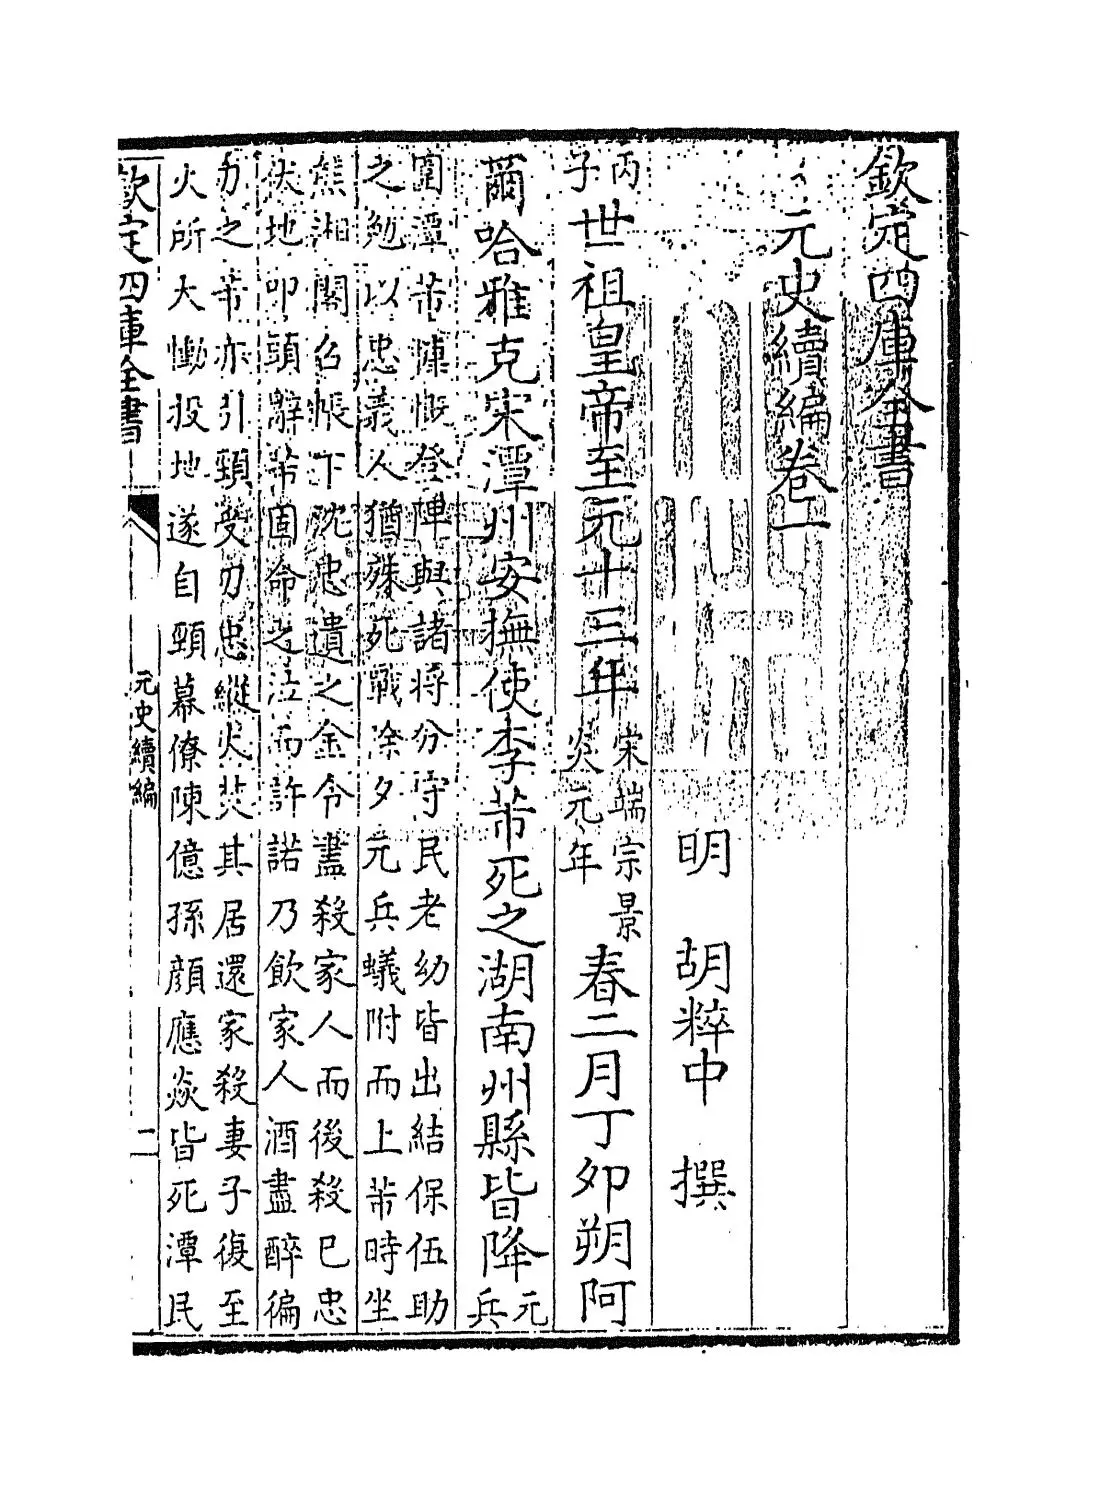 欽定四庫全書
元史續編卷一
明 胡粹中 撰
丙子世祖皇帝至元十三年宋端宗景炎元年春二月丁卯朔阿
爾哈雅克宋潭州安撫使李芾死之湖南州縣皆降元兵
圍潭芾慷慨登陣與諸將分守民老幼皆出結保伍助
之勉以忠義人猶殊死戰除夕元兵蟻附而上芾時坐
熊湘閣召帳下沈忠遺之金令盡殺家人而後殺已忠
伏地叩頭辭芾固命之泣而許諾乃飲家人酒盡醉徧
刃之芾亦引頸受刃忠縱火焚其居還家殺妻子復至
火所大慟投地遂自頸幕僚陳億孫顔應焱皆死潭民
欽定四庫全書 元史續編 二